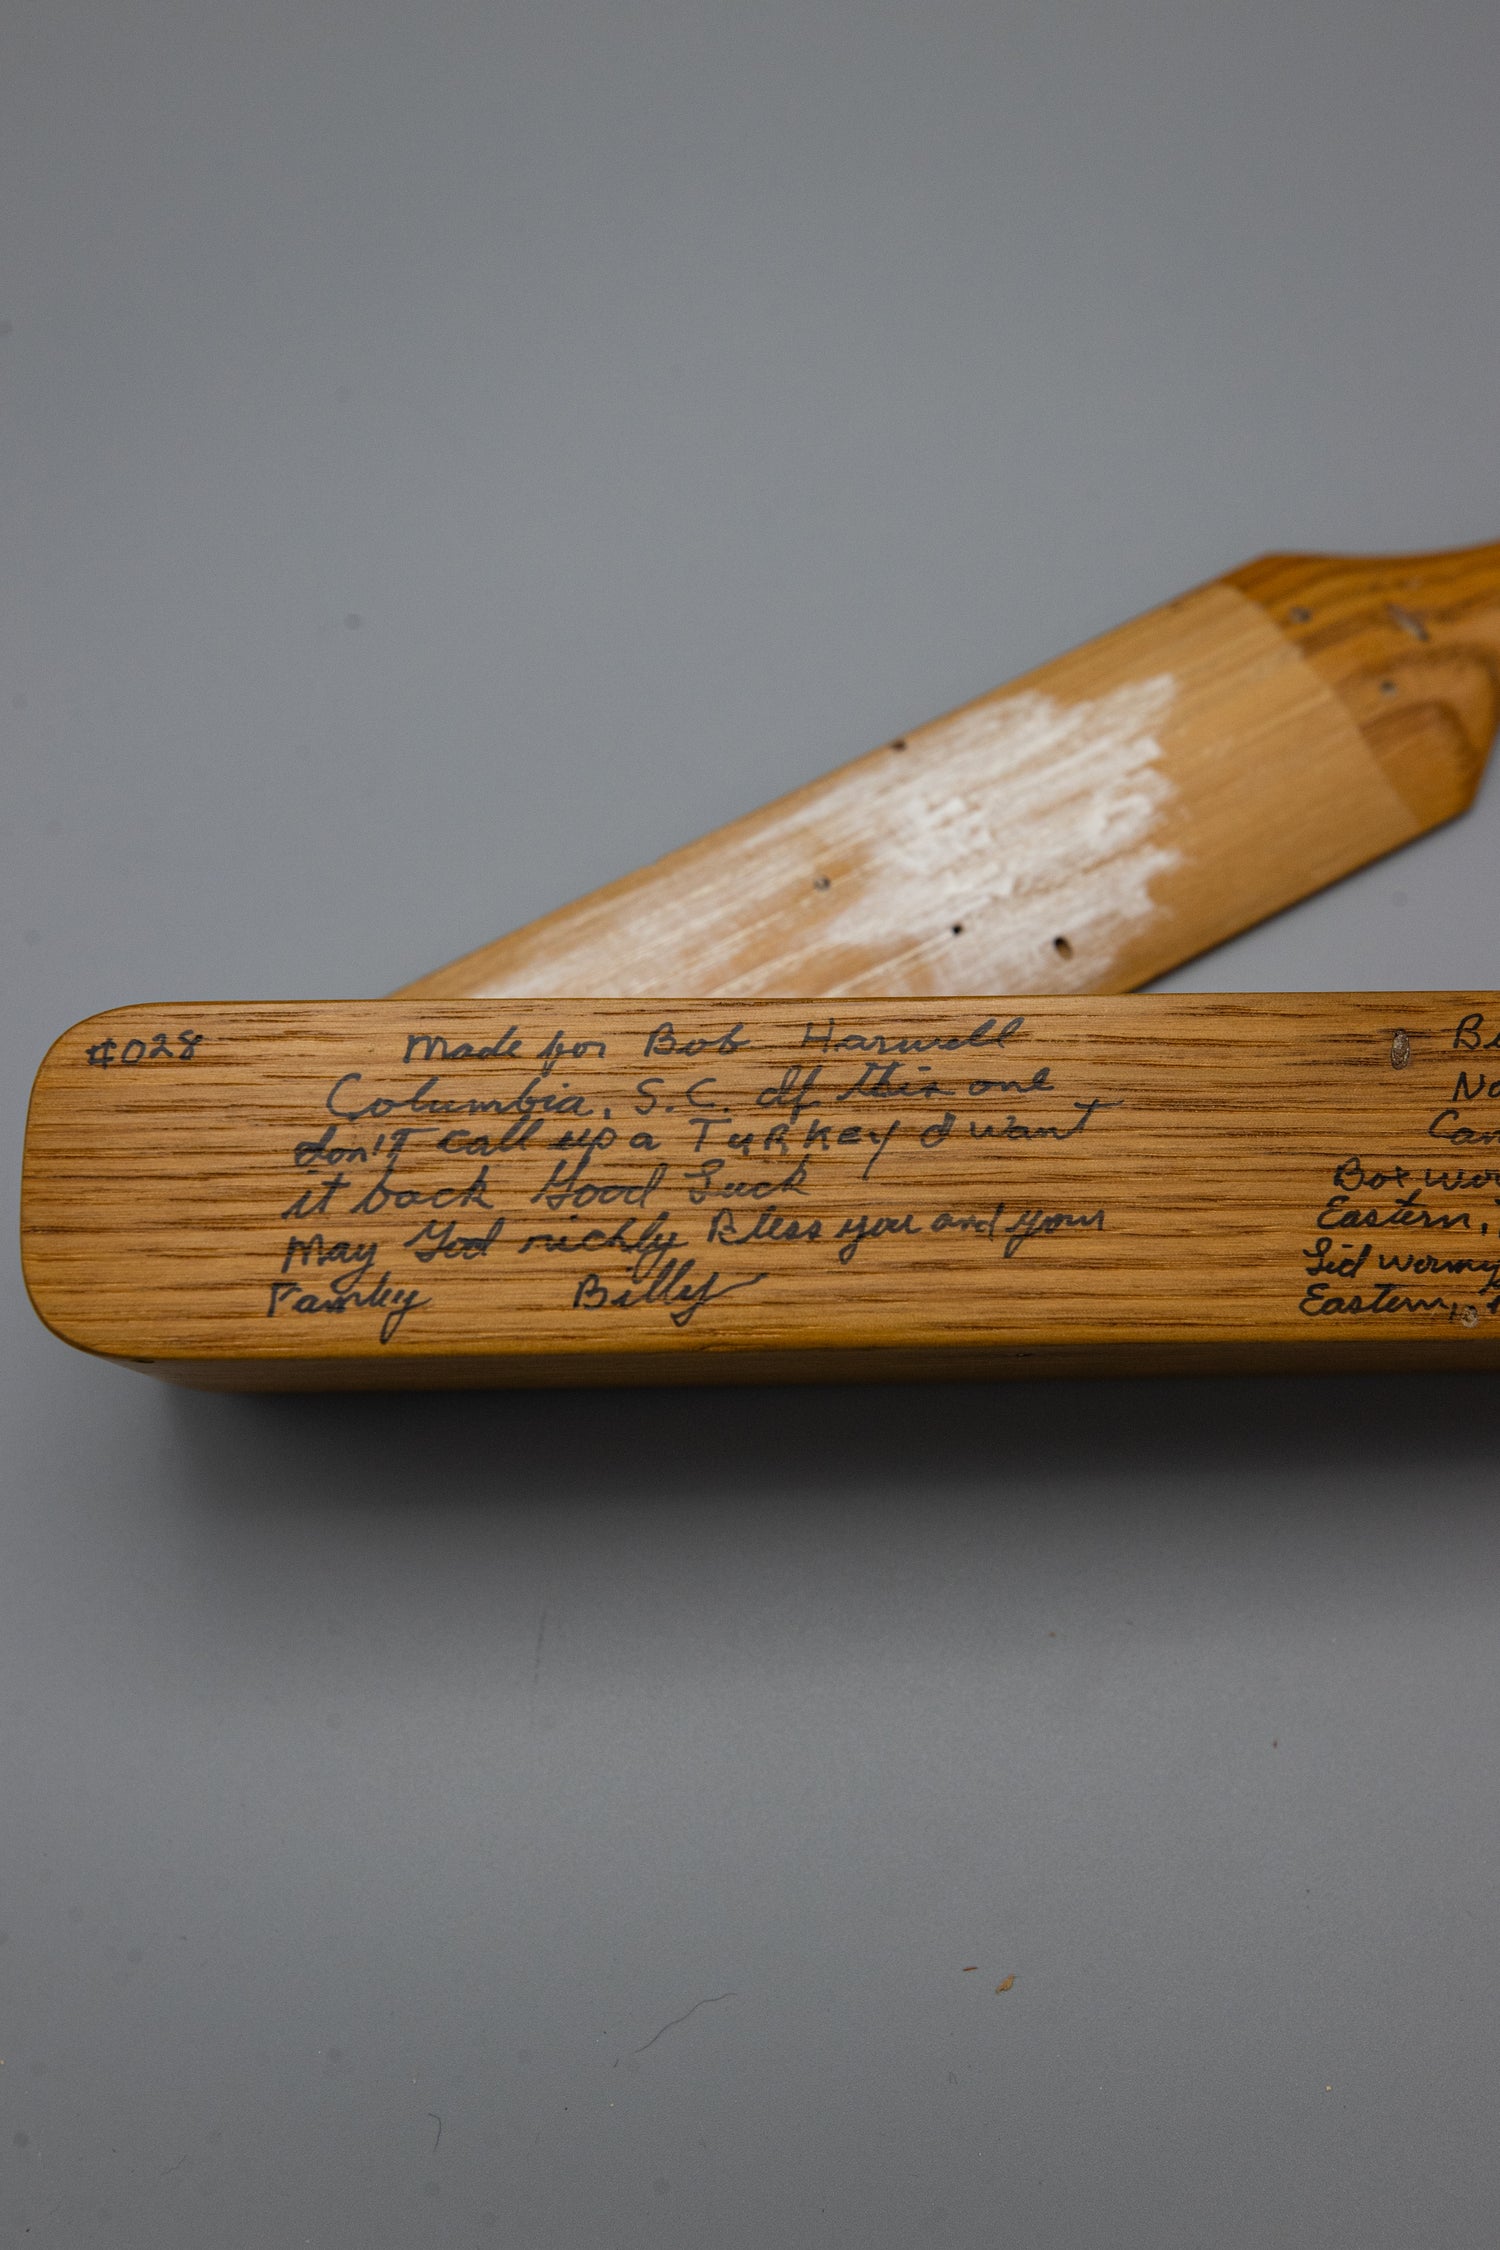 #028
Made for Bob Harwell
Columbia, S.C. If this one
don't call up a TuRKey I want
it back Good Luck
May God richly Bless you and your
Family Billy
Box
Eastern,
Lid wormy
Eastern,